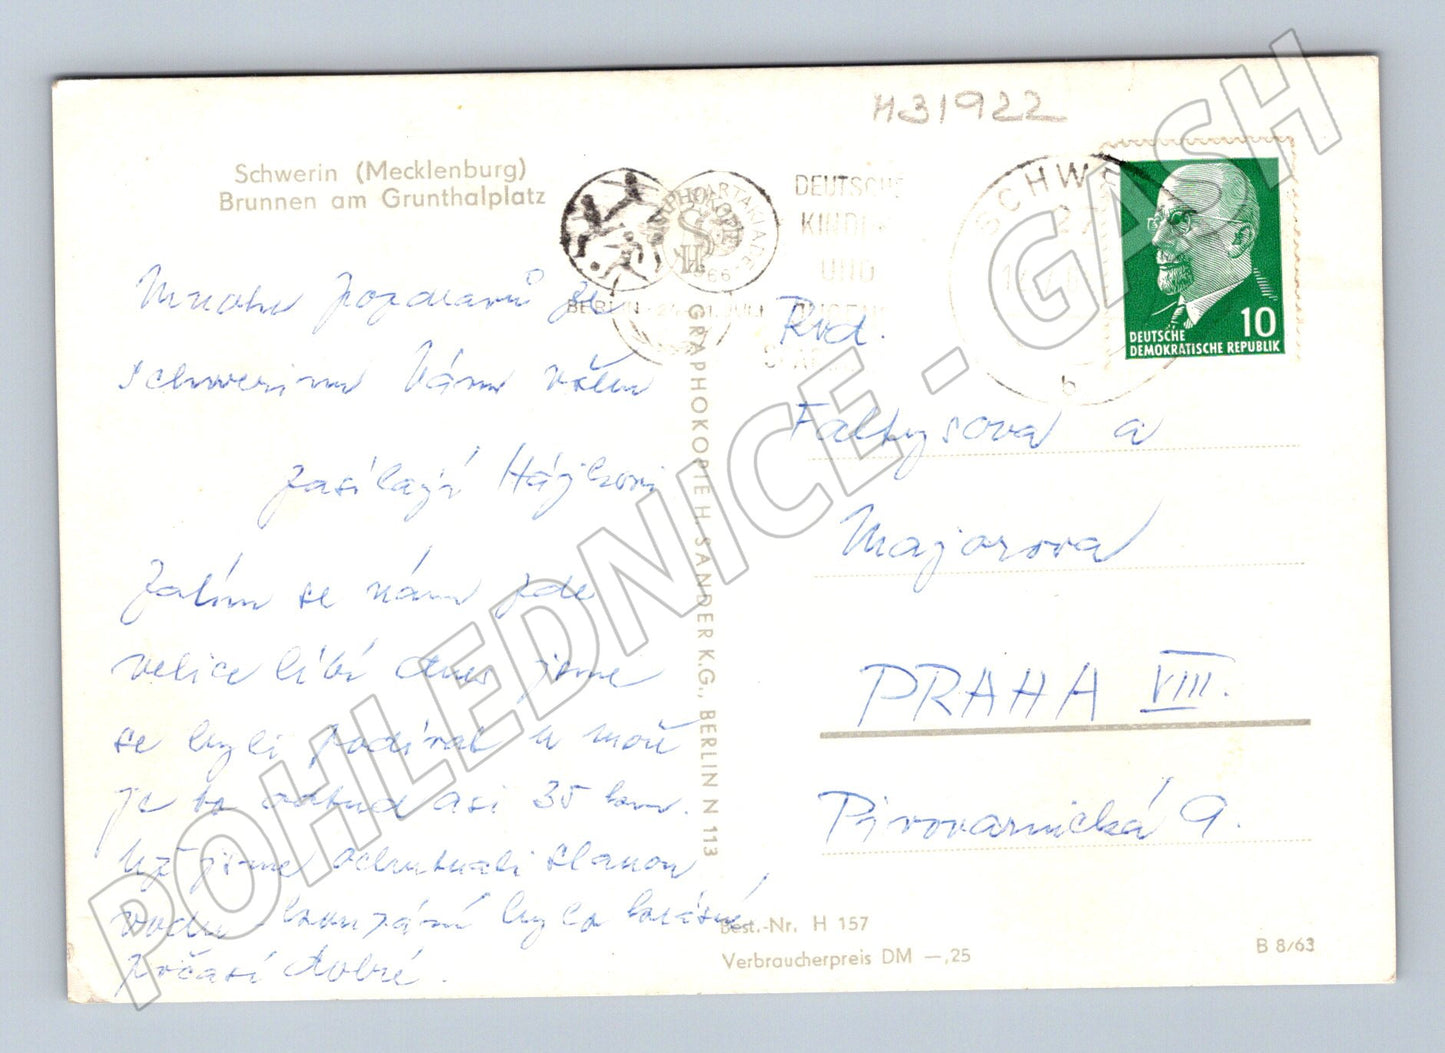 H31922
Schwerin (Mecklenburg)
Brunnen am Grunthalplatz
DEUTSCHE
KINDER-
UND
SPARTAKIADE
1966
BERLIN · 24.-31. JULI
SCHWE
DEUTSCHE
DEMOKRATISCHE REPUBLIK
10
b
Mnoho pozdravů ze
Schwerinu Vám všem
zasílají Hájkovi
Zatím se nám zde
velice líbí dnes jsme
se byli podívat u moře
je to odtud asi 35 km.
Už jsme ochutnali slanou
vodu - koupání bylo krásné,
počasí dobré.
Rod.
Faltysova a
Majorova
PRAHA VIII.
Pivovarnická 9.
GRAPHOKOPIE H. SANDER K.G., BERLIN N 113
Best.-Nr. H 157
Verbraucherpreis DM —,25
B 8/63
POHLEDNICE - GASH